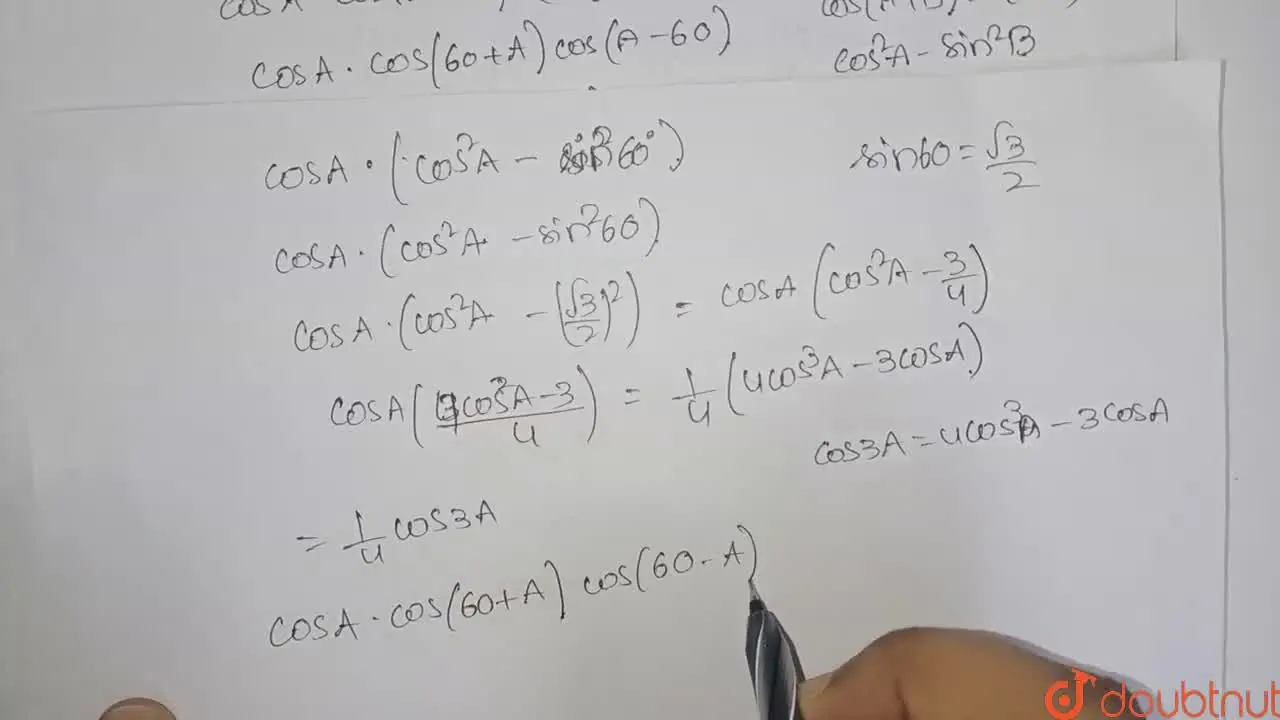 cos(A+B)
cosA · cos(60+A) cos(A-60)
cos²A - sin²B
cosA · (cos²A - sin²60°)
sin60 = √3/2
cosA · (cos²A - sin²60)
cosA · (cos²A - (√3/2)²) = cosA (cos²A - 3/4)
cosA (4cos²A-3/4) = 1/4 (4cos³A - 3cosA)
cos3A = 4cos³A - 3cosA
= 1/4 cos3A
cosA · cos(60+A) cos(60-A)
doubtnut